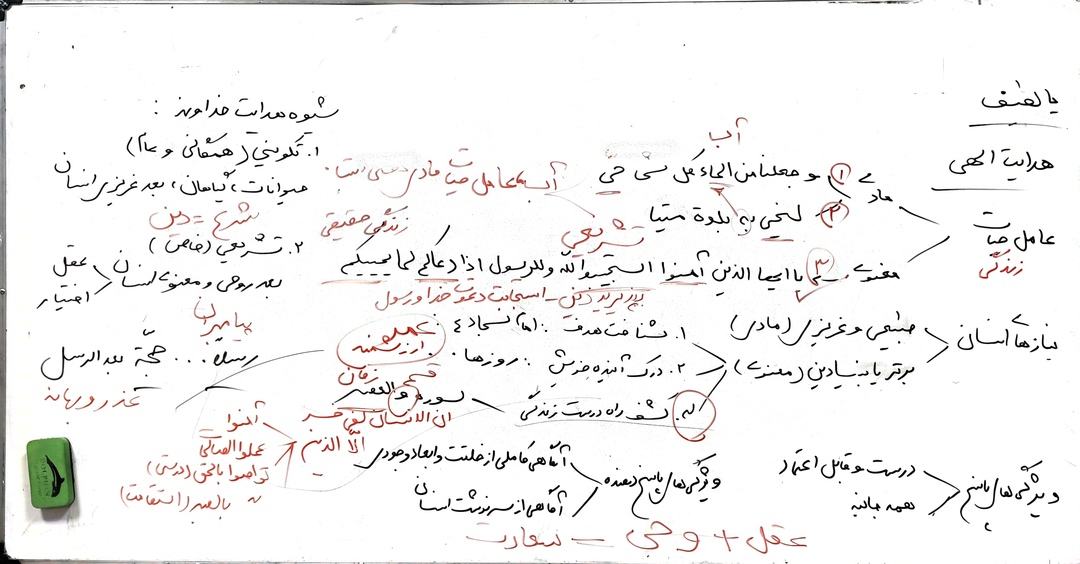 یا لطیف
هدایت الهی
عامل حیات
زندگی
مادی
① و جعلنا من الماء کل شی حیّ
آب
آب عامل حیات مادی
② لنحیی به بلدة میتا
زندگی حقیقی
تشریعی
معنوی
③ یا ایها الذین آمنوا استجیبوا لله وللرسول اذا دعاکم لما یحییکم
پذیرفتن استجابت دعوت خدا و رسول
نیازهای انسان
طبیعی و غریزی (مادی)
برتر یا بنیادین (معنوی)
۱. شناخت هدف: امام سجاد ع
۲. درک آینده خویش: روزها
کشف راه درست زندگی
سوره والعصر
قسم زمان
ان الانسان لفی خسر
الّا الذین
آمنوا
عملوا الصالح
تواصوا بالحق (درستی)
بالصبر (استقامت)
ویژگی های پاسخ
درست و قابل اعتماد
همه جانبه
ویژگی های پاسخ دهنده
آگاهی کاملی از خلقت و ابعاد وجودی
آگاهی از سرنوشت انسان
عقل + وحی = سعادت
شیوه هدایت خداوند:
۱. تکوینی (همگانی و عام)
حیوانات، گیاهان، بعد غریزی انسان
شرع = دین
۲. تشریعی (خاص)
بعد روحی و معنوی انسان
عقل
اختیار
پیامبران
رسلا ... حجّة بعد الرسل
عذر و بهانه